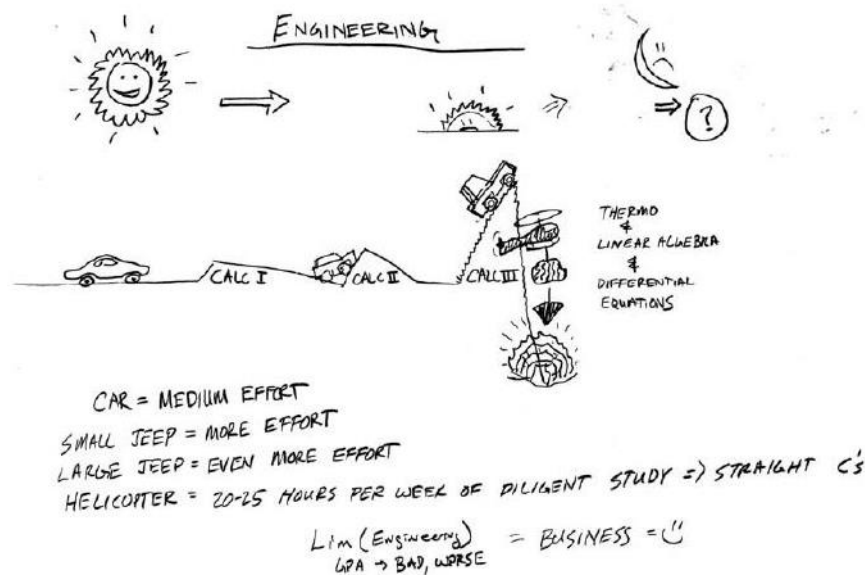 ENGINEERING
?
CALC I
CALC II
CALC III
THERMO
&
LINEAR ALGEBRA
&
DIFFERENTIAL
EQUATIONS
CAR = MEDIUM EFFORT
SMALL JEEP = MORE EFFORT
LARGE JEEP = EVEN MORE EFFORT
HELICOPTER = 20-25 HOURS PER WEEK OF DILIGENT STUDY => STRAIGHT C's
Lim (Engineering) = BUSINESS = :)
GPA → BAD, WORSE